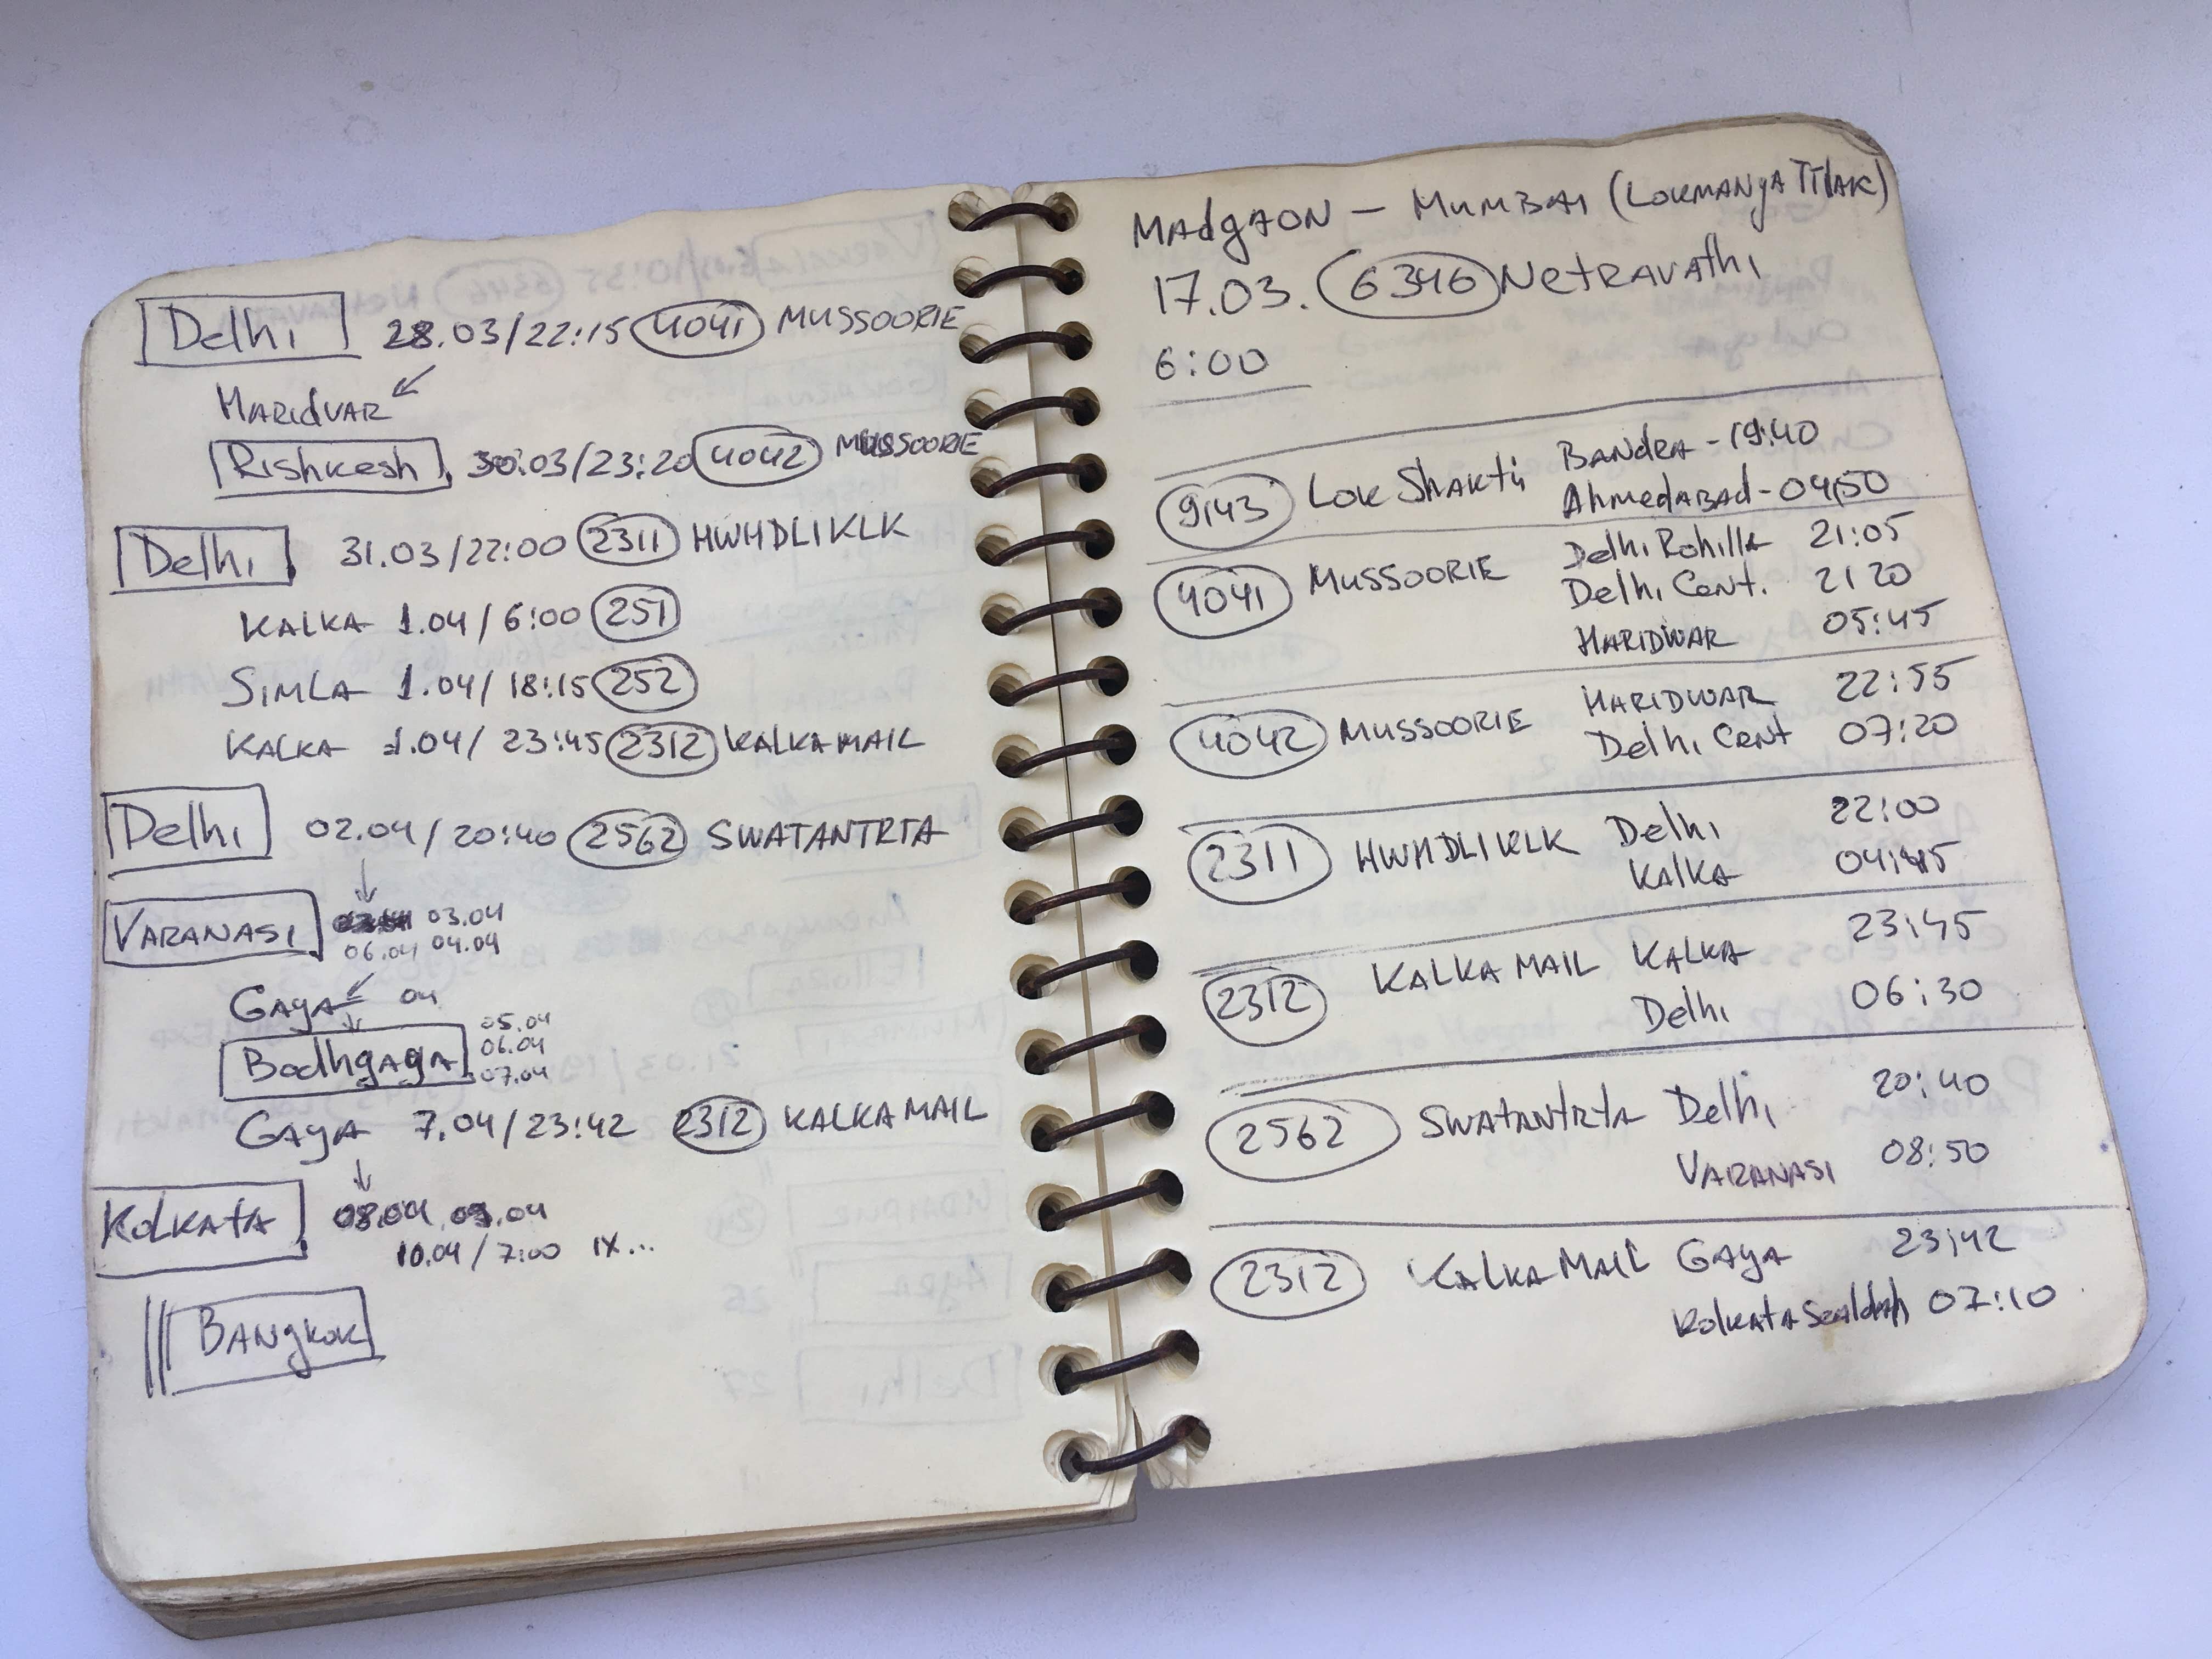 Delhi 28.03/22:15 4041 MUSSOORIE
HARIdVAR
RishKesh 30.03/23:20 4042 MUSSOORIE
Delhi 31.03/22:00 2311 HWHDLIKLK
KALKA 1.04/6:00 251
SIMLA 1.04/18:15 252
KALKA 1.04/23:45 2312 KALKA MAIL
Delhi 02.04/20:40 2562 SWATANTRTA
VARANASI 03.04
06.04 04.04
GAyA 04
BodhgAyA 05.04
06.04
07.04
GAyA 7.04/23:42 2312 KALKA MAIL
KolKAtA 08.04 09.04
10.04/7:00 IX...
BANgkok
MAdgAON - MUMBAI (LOKMANyA TIlAK)
17.03. 6346 NetRAVAthi
6:00
9143 LOK ShAKti BANdRA - 19:40
AhmedABAd - 04:50
4041 MUSSOORIE Delhi Rohilla 21:05
Delhi Cent. 21 20
HARIDWAR 05:45
4042 MUSSOORIE HARIDWAR 22:55
Delhi Cent 07:20
2311 HWHDLIKLK Delhi 22:00
KAlKA 04:45
2312 KALKA MAIL KALKA 23:45
Delhi 06:30
2562 SWAtANtRtA Delhi 20:40
VARANASI 08:50
2312 KALKA MAIL GAyA 23:42
KolKAtA Sealdah 07:10